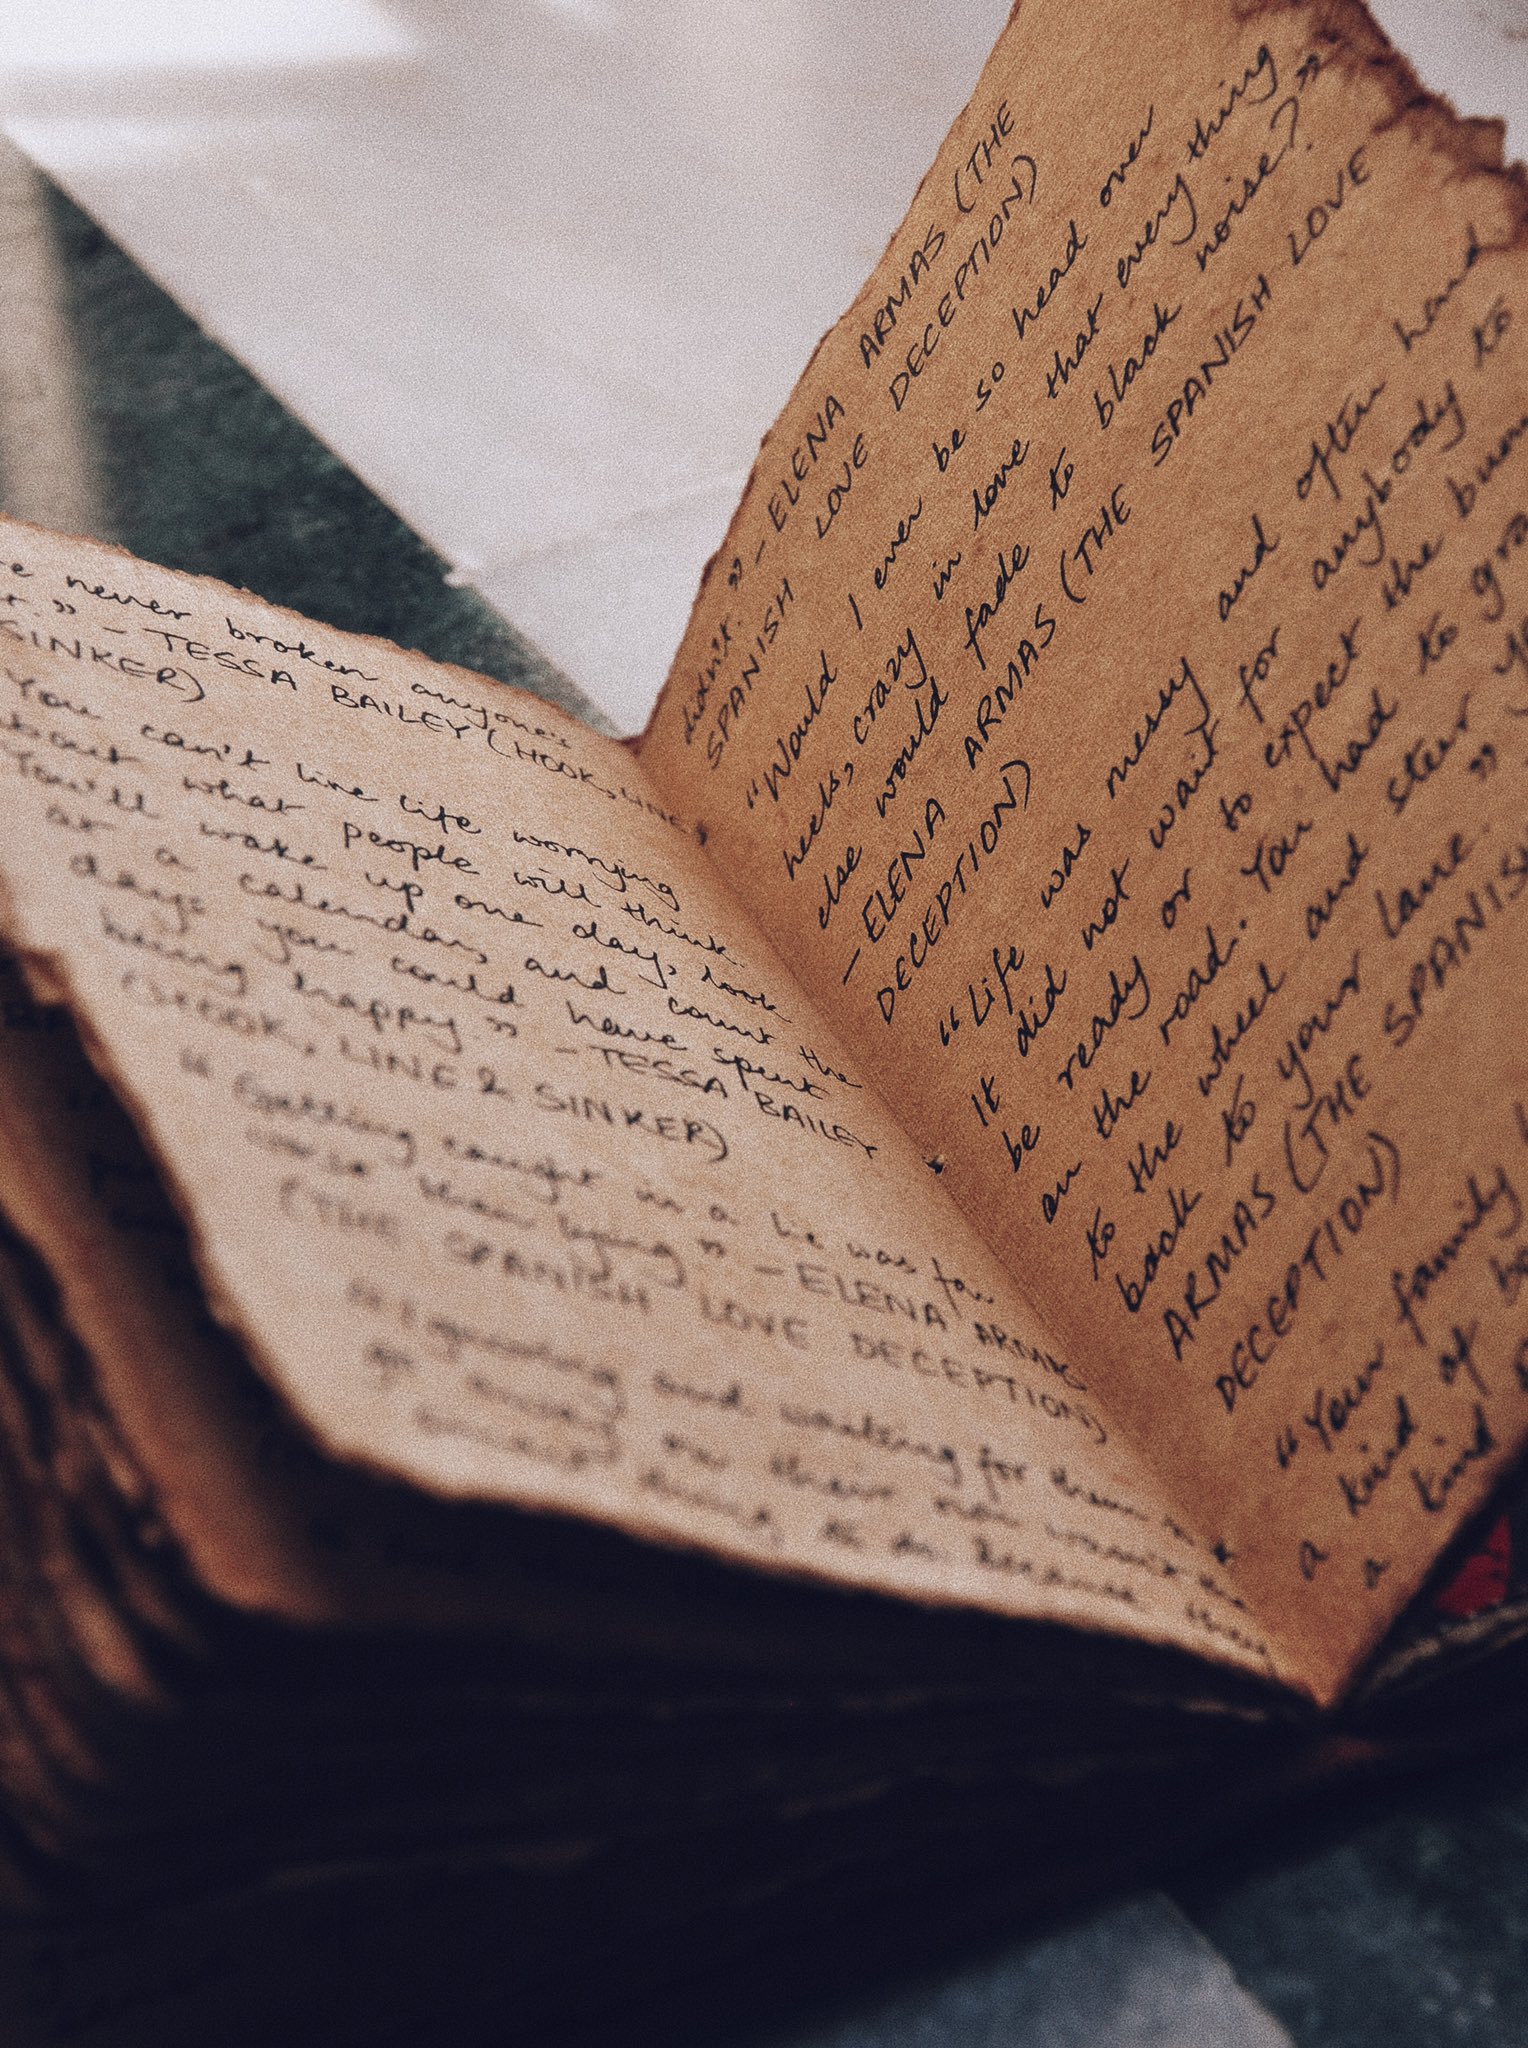 never broken anyone's
." – TESSA BAILEY (HOOK, LINE &
SINKER)
You can't live life worrying
about what people will think.
You'll wake up one day, look
at a calendar, and count the
days you could have spent
being happy." – TESSA BAILEY
(HOOK, LINE & SINKER)
"Getting caught in a lie was far
worse than lying" – ELENA ARMAS
(THE SPANISH LOVE DECEPTION)
and waiting for them to
go away on their own wasn't the
to do. Because they
didn't." – ELENA ARMAS (THE
SPANISH LOVE DECEPTION)
"Would I ever be so head over
heels, crazy in love that everything
else would fade to black noise?"
– ELENA ARMAS (THE SPANISH LOVE
DECEPTION)
"Life was messy and often hard.
It did not wait for anybody to
be ready or to expect the
on the road. You had to
to the wheel and steer
back to your lane."
ARMAS (THE SPANISH
DECEPTION)
"Your family
a kind of
a kind